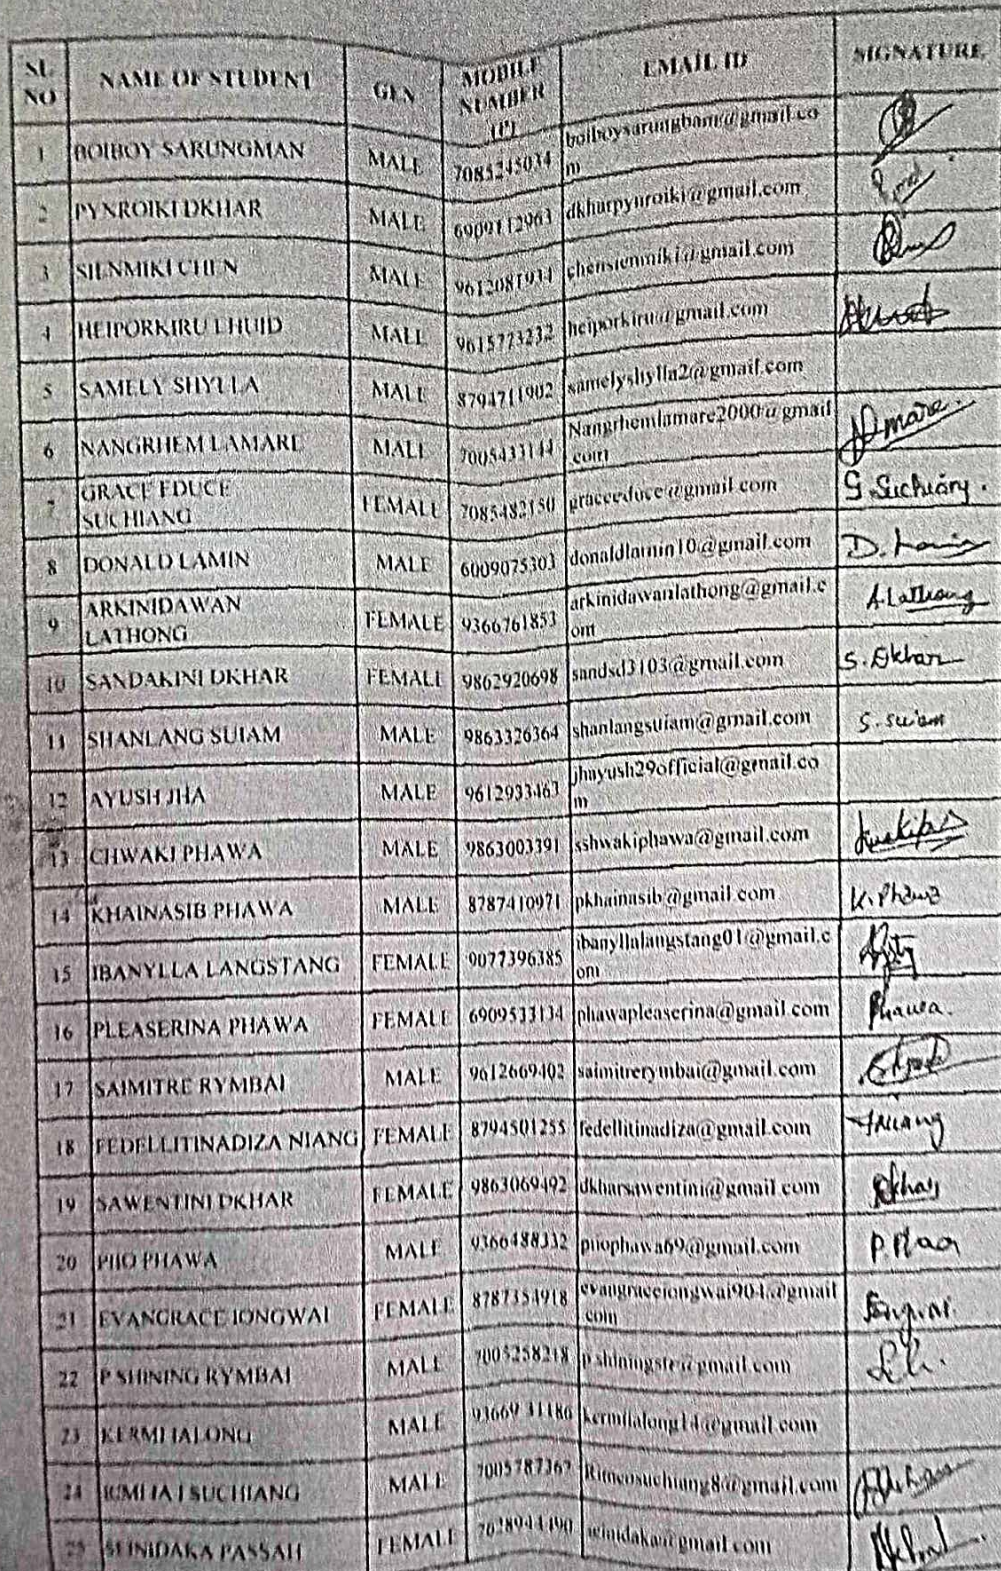 SL NO NAME OF STUDENT GEN MOBILE NUMBER (P) EMAIL ID SIGNATURE
1 BOIBOY SARUNGMAN MALE 7085245034 boiboysarungbam@gmail.com
2 PYNROIKI DKHAR MALE 6909112963 dkharpynroiki@gmail.com
3 SIENMIKI CHEN MALE 9612081934 chensienmiki@gmail.com
4 HEIPORKIRU LHUID MALE 9615773232 heiporkiru@gmail.com
5 SAMELY SHYLLA MALE 8794711902 samelyshylla2@gmail.com
6 NANGRHEM LAMARE MALE 7005433144 Nangrhemlamare2000@gmail.com
7 GRACE EDUCE SUCHIANG FEMALE 7085482150 graceeduce@gmail.com G. Suchiang.
8 DONALD LAMIN MALE 6009075303 donaldlamin10@gmail.com D. Lamin
9 ARKINIDAWAN LATHONG FEMALE 9366761853 arkinidawanlathong@gmail.com A. Lathong
10 SANDAKINI DKHAR FEMALE 9862920698 sandsd3103@gmail.com S. Dkhar
11 SHANLANG SUIAM MALE 9863326364 shanlangsuiam@gmail.com S. suiam
12 AYUSH JHA MALE 9612933463 jhayush29official@gmail.com
13 CHWAKI PHAWA MALE 9863003391 sshwakiphawa@gmail.com
14 KHAINASIB PHAWA MALE 8787410971 pkhainasib@gmail.com K. Phawa
15 IBANYLLA LANGSTANG FEMALE 9077396385 ibanyllalangstang01@gmail.com
16 PLEASERINA PHAWA FEMALE 6909533134 phawapleaserina@gmail.com Phawa.
17 SAIMITRE RYMBAI MALE 9612669402 saimitrerymbai@gmail.com
18 FEDELLITINADIZA NIANG FEMALE 8794501255 fedellitinadiza@gmail.com
19 SAWENTINI DKHAR FEMALE 9863069492 dkharsawentini@gmail.com Dkhar
20 PHO PHAWA MALE 9366488332
21 EVANGRACE IONGWAI FEMALE 8787354918
22 P SHINING RYMBAI MALE 7005258218
23 MALE kermiialong14@gmail.com
24 SUCHIANG MALE 7005787367
25 PASSAH FEMALE